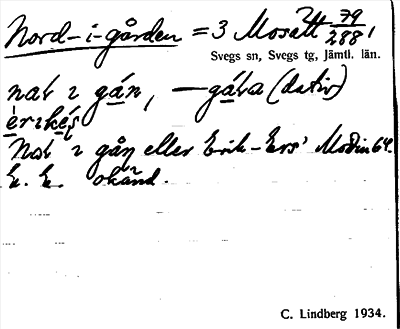 Nord-i-gården = 3 Mosätt 79/288,
Svegs sn, Svegs tg, Jämtl. län.
nar ı gán, — gára (dativ)
érıkés
Nar ı gån eller Erik-Ers' Modin 64.
E. E. okänd.
C. Lindberg 1934.